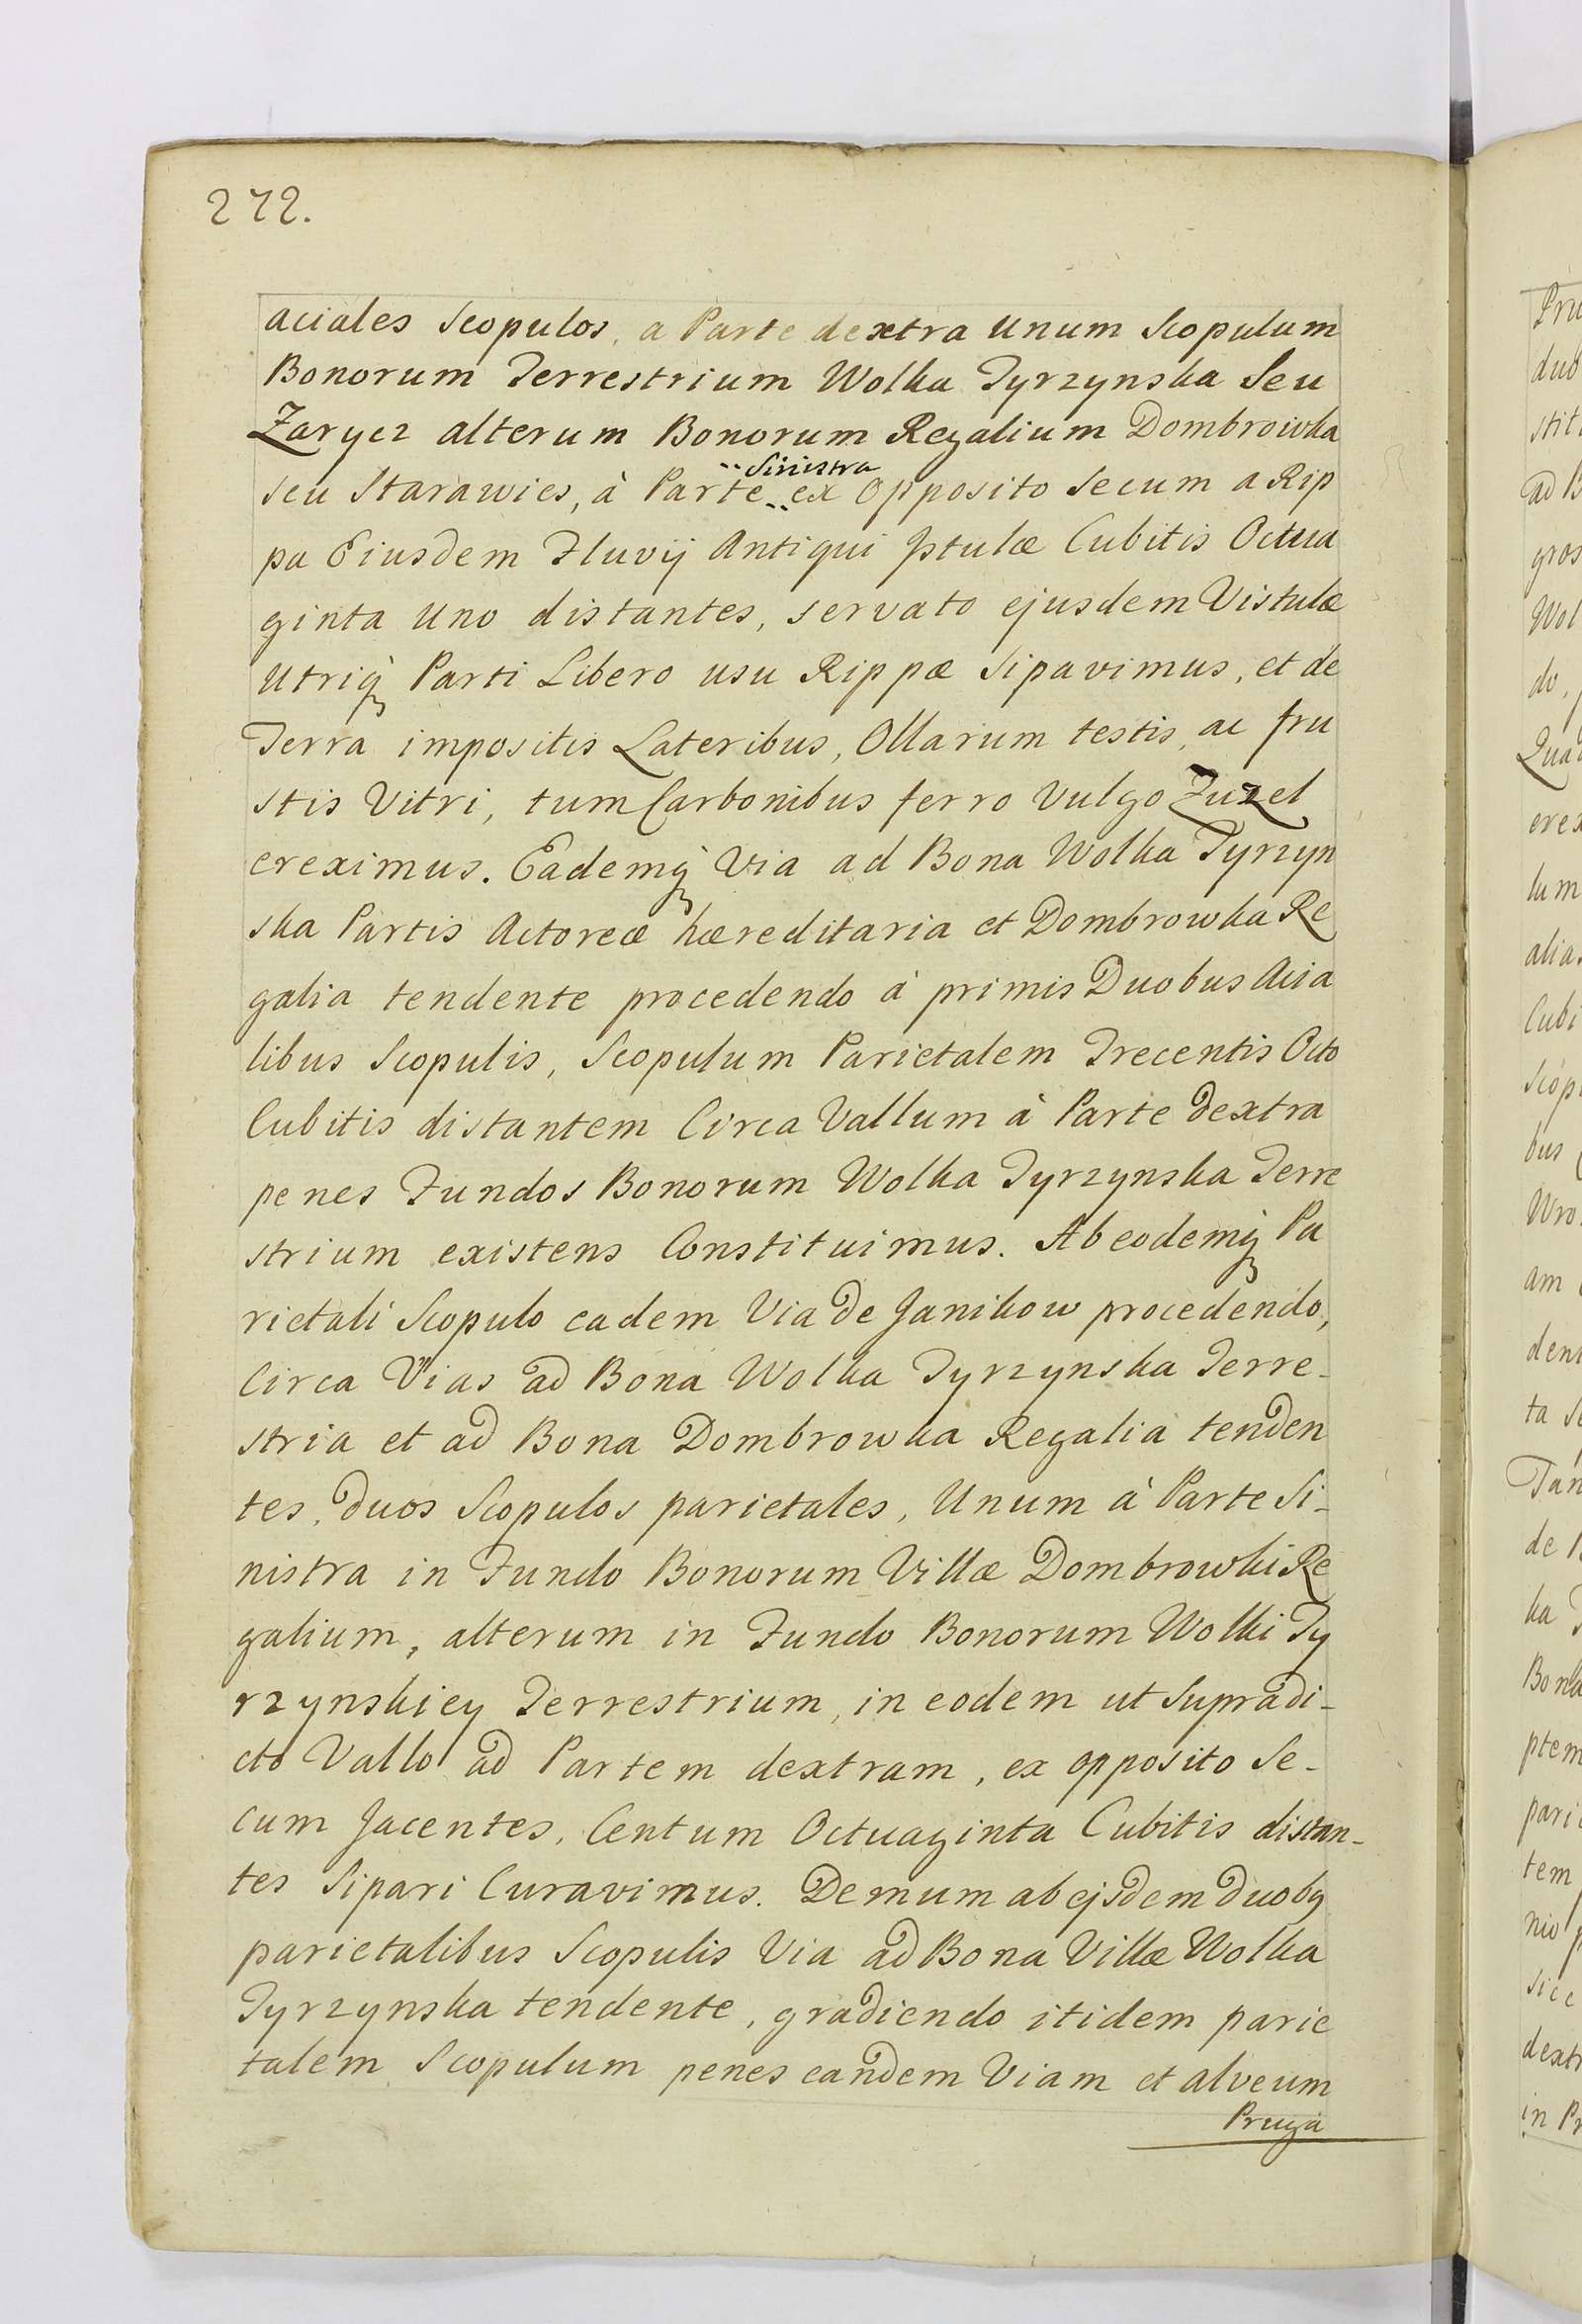 272.
aciales Scopulos, a Parte dextra unum Scopulum
Bonorum Terrestrium Wolka Tyrzynska Seu
Zarycz alterum Bonorum Regalium Dombrowka
seu Starawies, à Parte Sinistra ex Opposito Secum a Rip
pa Eiusdem Fluvij Antiqui Istulæ Cubitis Octua
ginta uno distantes, servato ejusdem Vistulæ
utriq̀ Parti Libero usu Rippæ Sipavimus, et de
Terra impositis Lateribus, Ollarum testis, ac fru
stis Vitri, tum Carbonibus ferro Vulgo Zuzel
ereximus. Eademq̀ Via ad Bona Wolka Tyrzyn
ska Partis Actoreæ hæreditaria et Dombrowka Re
galia tendente procedendo à primis Duobus Acia
libus Scopulis, Scopulum Parietalem Trecentis Octo
Cubitis distantem Circa Vallum à Parte dextra
penes Fundos Bonorum Wolka Tyrzynska Terre
strium existens Constituimus. Ab eodemq̀ Pa
rietali Scopulo eadem Via de Janikow procedendo,
Circa Vias ad Bona Wolka Tyrzynska Terre-
stria et ad Bona Dombrowka Regalia tenden
tes, duos Scopulos parietales, Unum à Parte Si-
nistra in Fundo Bonorum Villæ Dombrowki Re
galium, alterum in Fundo Bonorum Wolki Ty
rzynskiey Terrestrium, in eodem ut Supradi-
cto Vallo ad Partem dextram, ex opposito Se-
cum Jacentes, Centum Octuaginta Cubitis distan-
tes Sipari Curavimus. Demum ab ejsdem duobq
parietalibus Scopulis Via ad Bona Villæ Wolka
Tyrzynska tendente, gradiendo itidem parie
talem Scopulum penes eandem Viam et alveum
Pruga
Pru
duo
stit
ad B
gros
Wol
do,
Qua
erex
lum
alia
Cubi
Scop
bus
Wro
am
den
ta Se
Tan
de
ka
Bona
ptem
pari
tem
nio
sicc
dext
in Pr